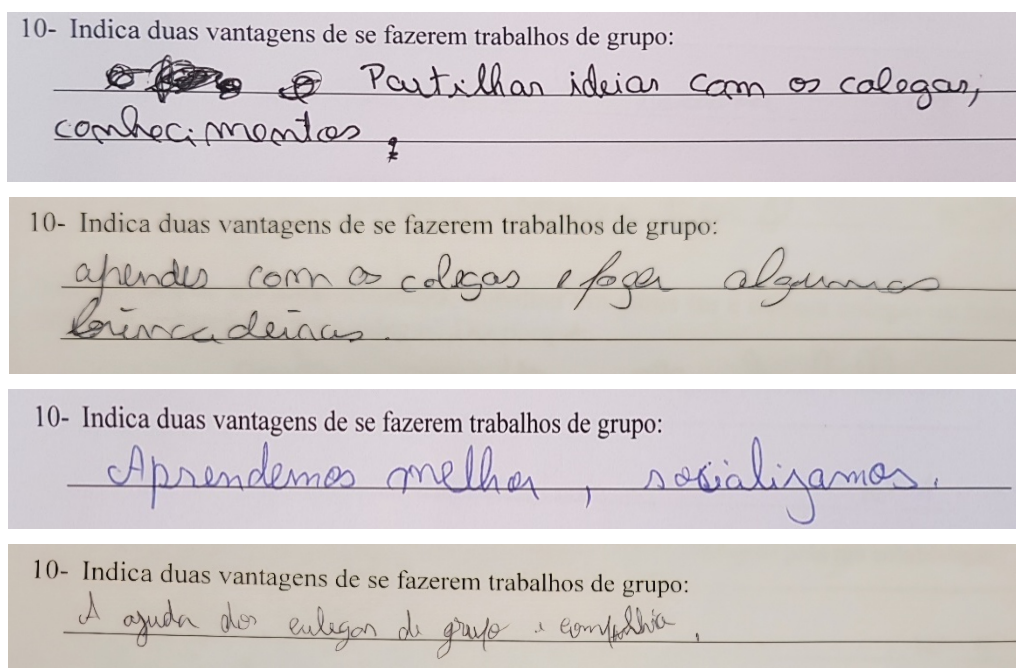 10- Indica duas vantagens de se fazerem trabalhos de grupo:
Partilhar ideias com os colegas,
conhecimentos.
10- Indica duas vantagens de se fazerem trabalhos de grupo:
aprendes com os colegas e fazer algumas
brincadeiras.
10- Indica duas vantagens de se fazerem trabalhos de grupo:
Aprendemos melhor, socializamos.
10- Indica duas vantagens de se fazerem trabalhos de grupo:
A ajuda dos colegas de grupo e companhia.